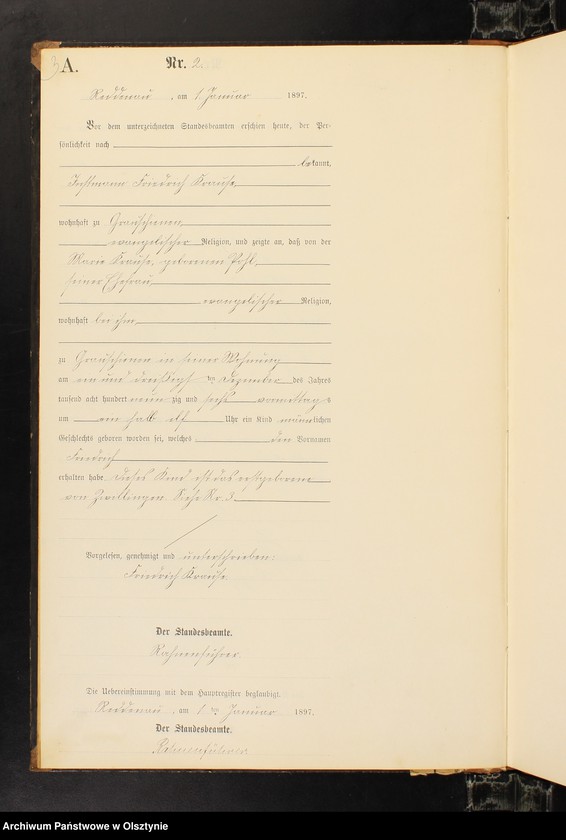 A.
Nr. 2.
Reddenau, am 1. Januar 1897.
Vor dem unterzeichneten Standesbeamten erschien heute, der Per-
sönlichkeit nach
bekannt,
Instmann Friedrich Krause,
wohnhaft zu Grauschienen,
evangelischer Religion, und zeigte an, daß von der
Marie Krause, geborenen Pohl,
seiner Ehefrau,
evangelischer Religion,
wohnhaft bei ihm,
zu Grauschienen in seiner Wohnung
am ein und dreißigsten Dezember des Jahres
tausend acht hundert neunzig und sechs vormittags
um ein halb elf Uhr ein Kind männlichen
Geschlechts geboren worden sei, welches den Vornamen
Friedrich
erhalten habe. Dieses Kind ist das erstgeborene
von Zwillingen. Siehe Nr. 3.
Vorgelesen, genehmigt und unterschrieben:
Friedrich Krause.
Der Standesbeamte.
Rahnenführer
Die Uebereinstimmung mit dem Hauptregister beglaubigt.
Reddenau, am 1ten Januar 1897.
Der Standesbeamte.
Rahnenführer
Archiwum Państwowe w Olsztynie